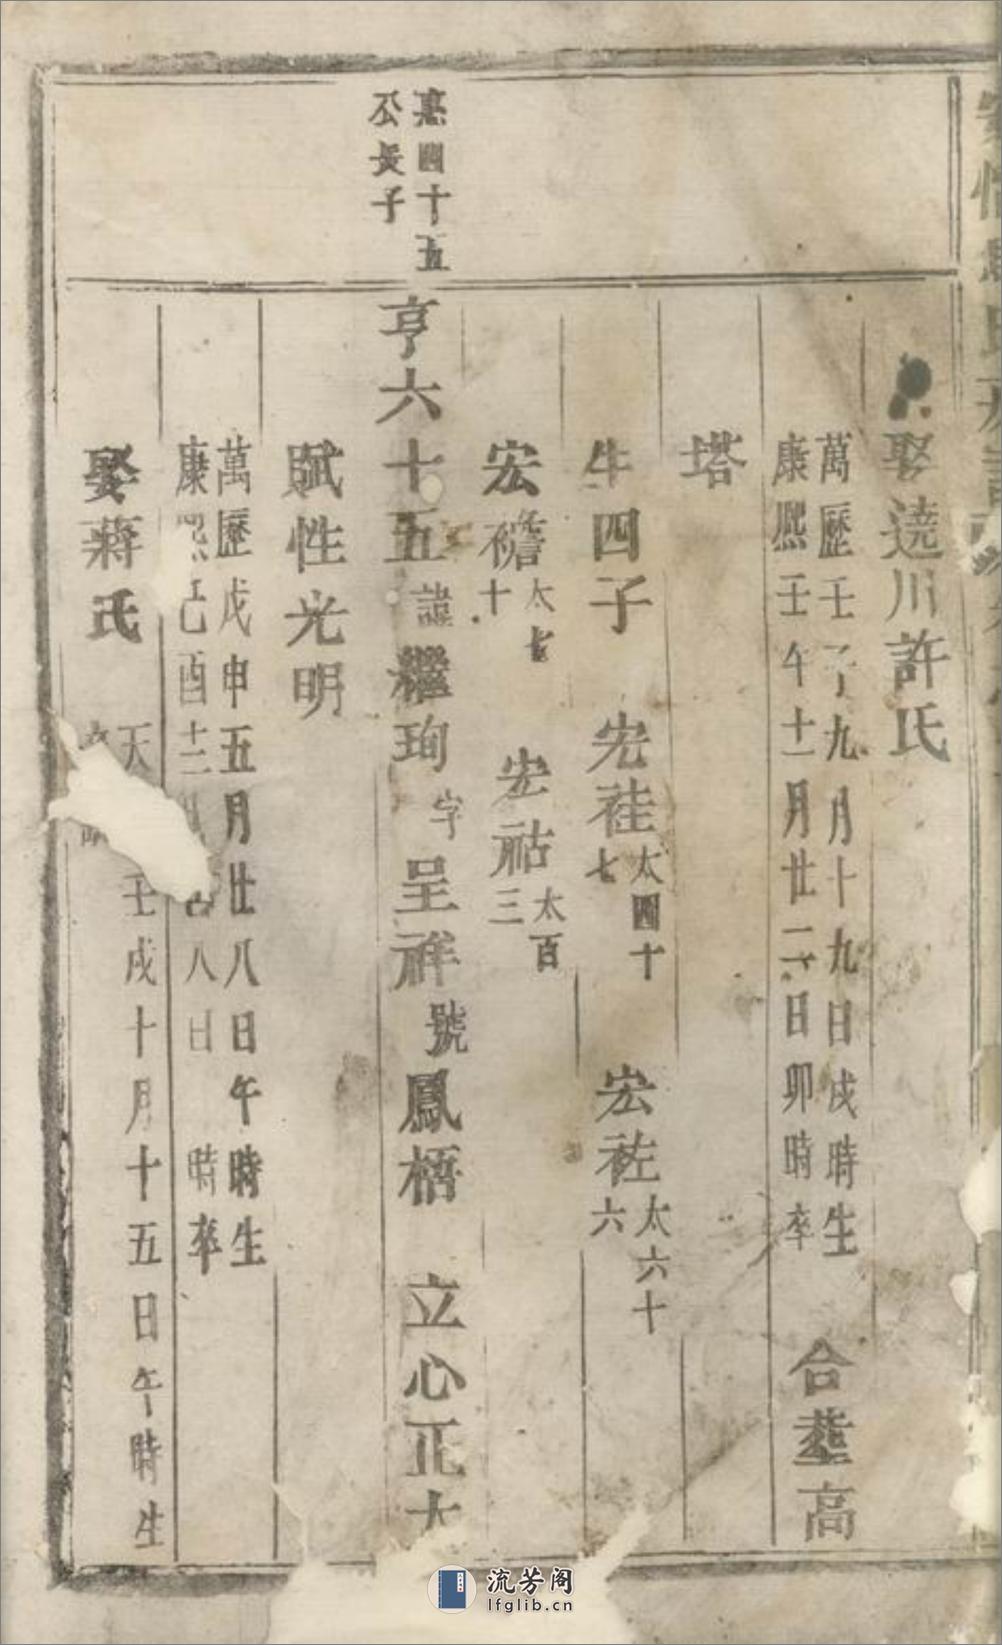 娶澆川許氏
萬歷壬子九月十九日戌時生
康熙壬午十一月廿二日卯時卒
合葬高
塔
生四子 宏袿太四十七 宏祐太六十六
宏襜太七十 宏祜太百三
惠四十五
公長子
亨六十五諱繼珣字呈祥號鳳梧 立心正大
賦性光明
萬歷戊申五月廿八日午時生
康熙己酉十二八日 時卒
娶蔣氏
天壬戌十月十五日午時生
流芳阁
lfglib.cn